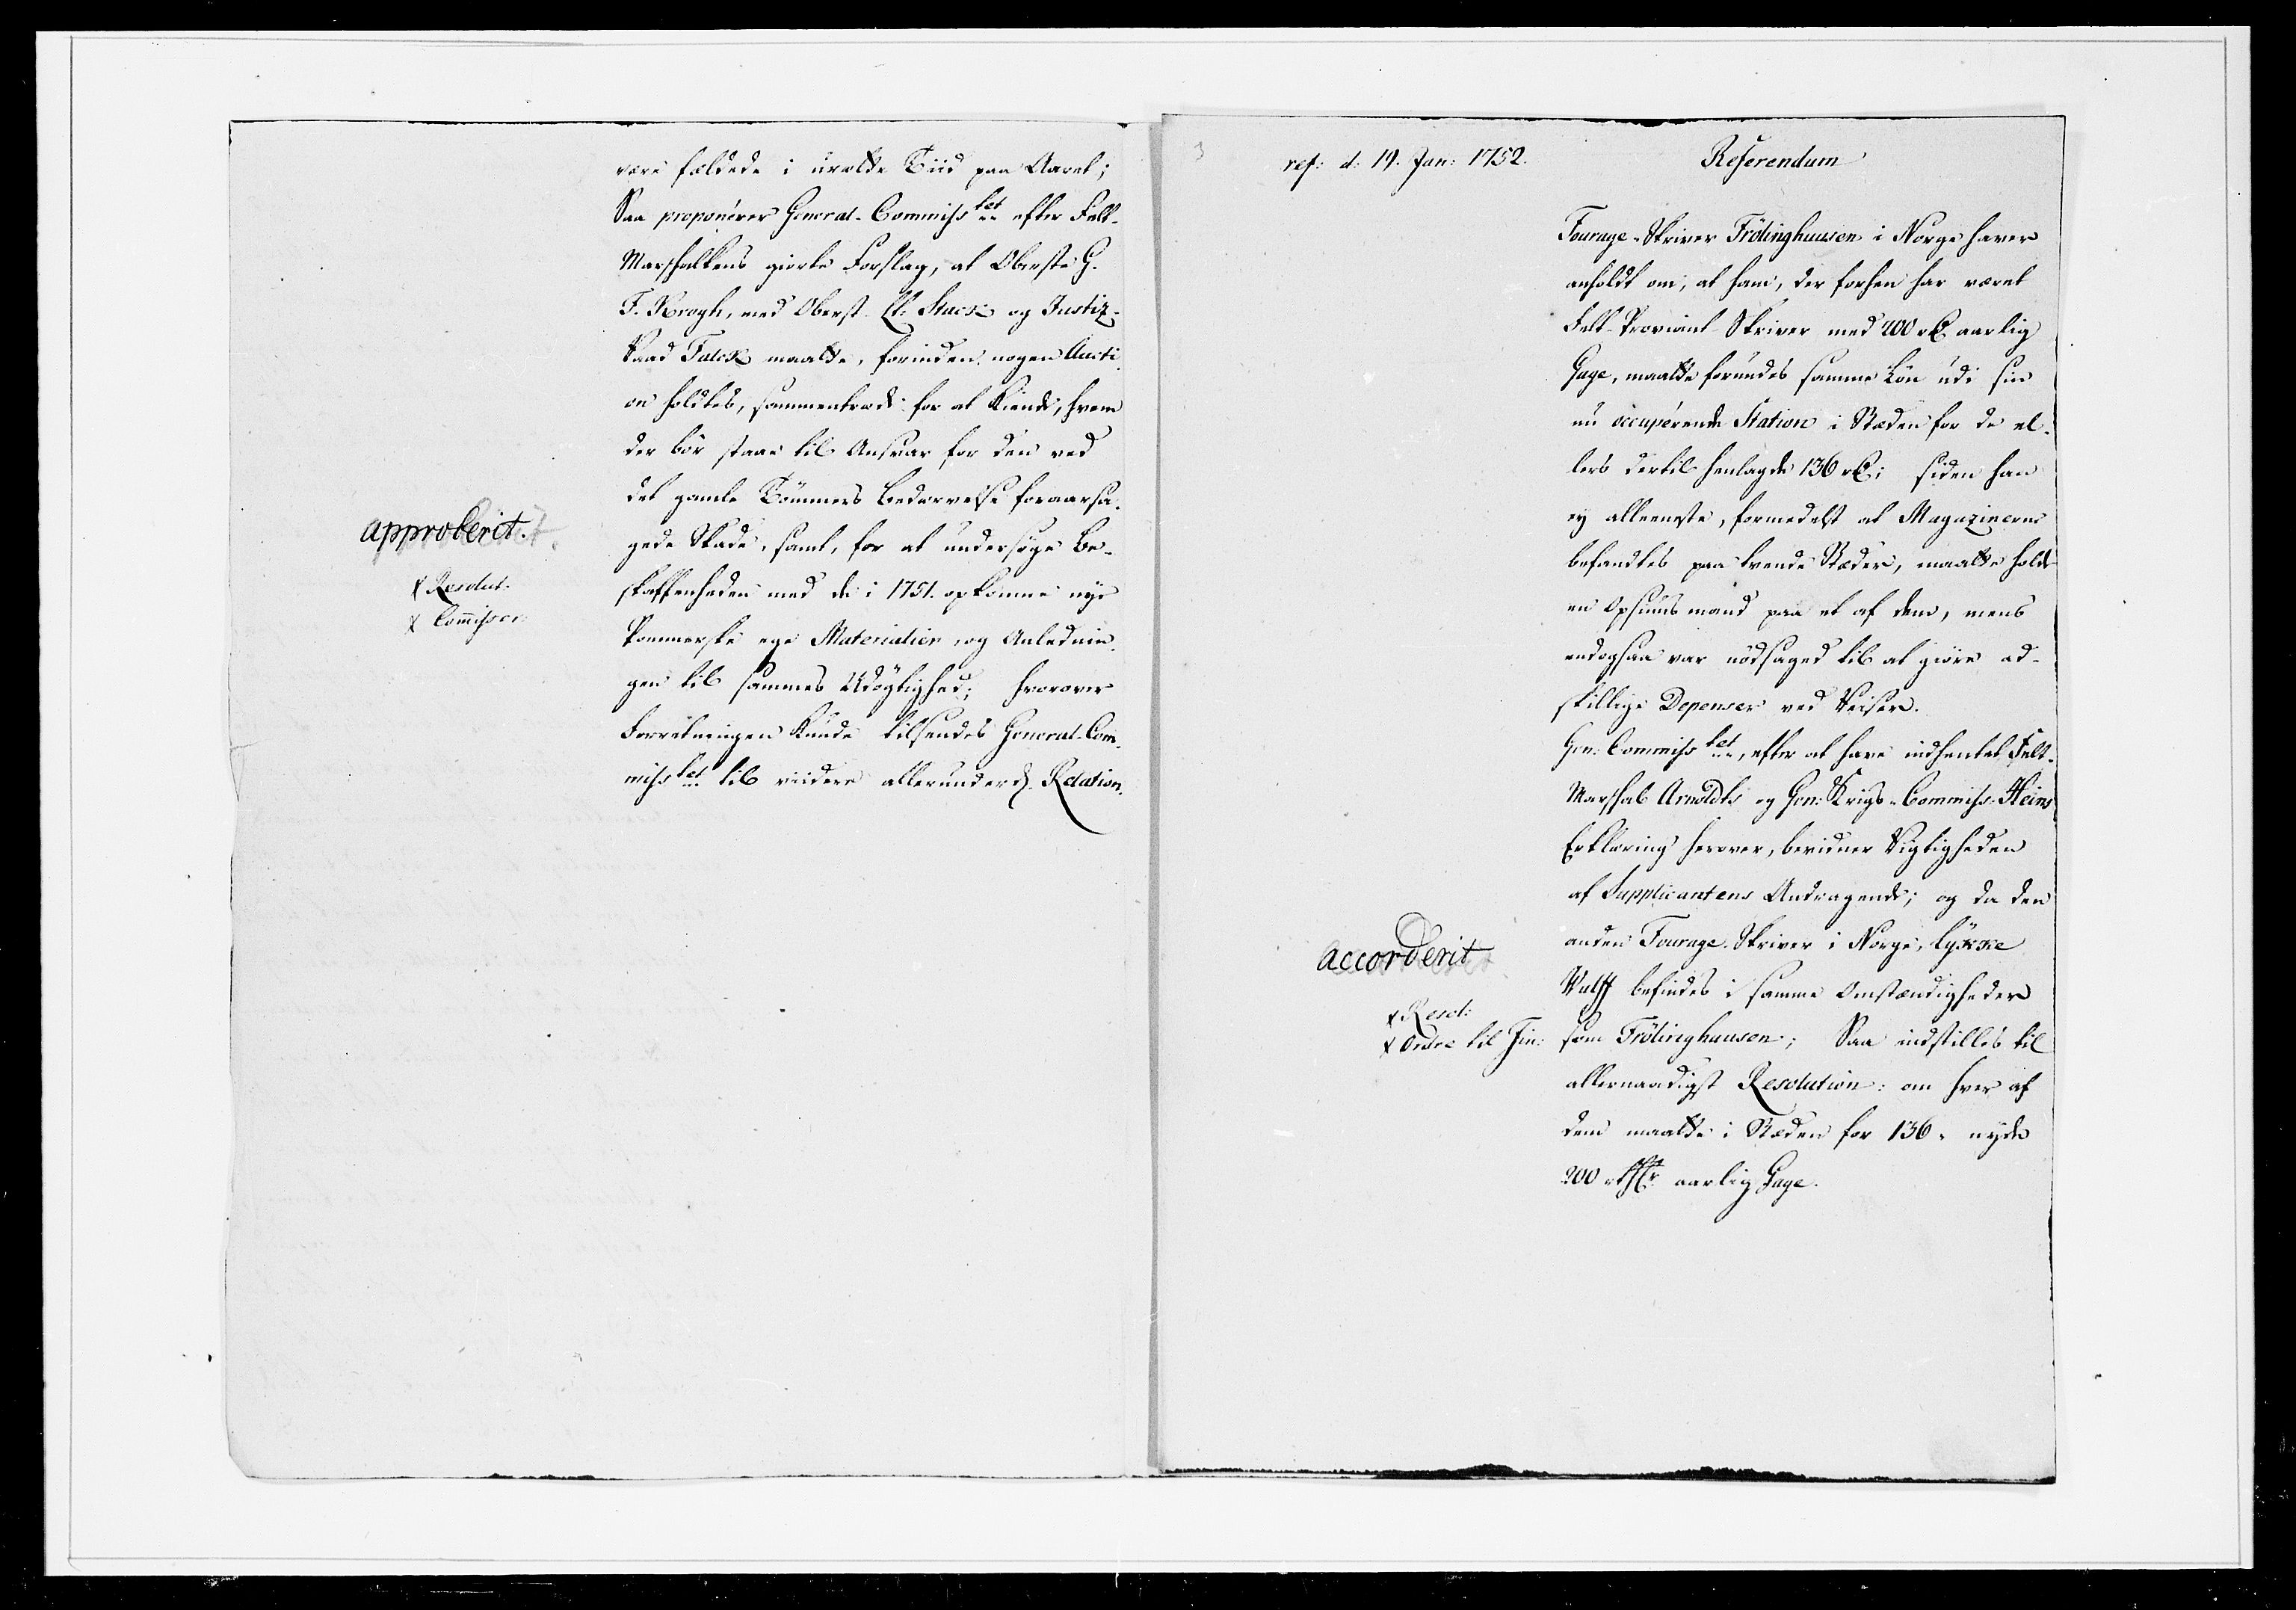 være fældede i urette Tiid paa Aaret;
Saa proponérer General-Commissket efter Felt-
Marschallens giorte Forslag, at Oberste G.
F. Krogh, med Oberst Lt: Stuck og Justiz-
Raad Falck maatte, forinden nogen Aucti-
on holdtes, sammentræde for at kiende, hvem
der bör staae til Ansvar for den ved
det gamle Tömmers Bedærvelse foraarsa-
gede Skade, samt, for at undersöge Be-
skaffenheden med de i 1751. opkomne nye
Pommerske ege Materialier, og Anlednin-
gen til sammes Udögtighed; hvorover
Forretningen kunde tilsendes General-Com-
missket til viidere allerunderd. Relation.
approberit.
Resolut.
Commissor.
3
ref: d: 19. Jan: 1752.
Referendum
Fourage-Skriver Frölinghuusen i Norge haver
anholdt om, at ham, der forhen har været
Felt-Proviant-Skriver med 200 rd. aarlig
Gage, maatte forundes samme Lön udi sin
nu occupérende Station i Stæden for de el-
lers dertil henlagde 136 rd; siden han
ey alleeneste, formedelst at Magazinerne
befandtes paa tvende Stæder, maatte holde
en Opsiuns mand paa et af dem, mens
endogsaa var nödsaged til at giöre ad-
skillige Depenser ved Reiser.
Gen: Commissket, efter at have indhentet Felt-
Marschal Arnoldts og Gen: Krigs-Commiss: Heins
Erklæring herover, bevidner Rigtigheden
af Supplicantens Andragende; og da den
anden Fourage-Skriver i Norge, Lykke
Wulff befindes i samme Omstændigheder
som Frölinghuusen; Saa indstilles til
allernaadigst Resolution: om hver af
dem maatte i Stæden for 136. nyde
200 rthlr aarlig Gage.
accorderit
Resol:
Ordre til Fin: